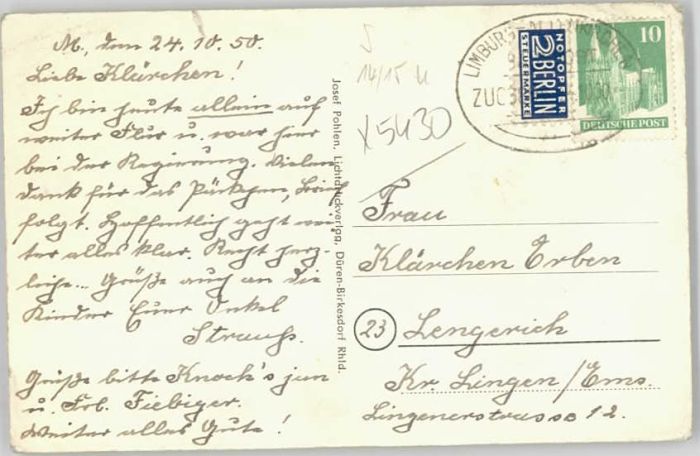 M., den 24.10.50.
Liebe Klärchen!
Ich bin heute allein auf
weiter Flur u. war hier
bei der Regierung. Vielen
dank für das Päckchen,
folgt. Hoffentlich geht wei-
ter alles klar. Recht herz-
liche Grüße auch an die
Kinder Euer Onkel
Strauss.
Grüße bitte Knoch's jun
u. Frl. Fiebiger.
Weiter alles Gute!
Josef Pohlen, Lichtdruckverlag, Düren-Birkesdorf Rhld.
14/15
x5430
LIMBURG
ZUG
NOTOPFER
2 BERLIN
STEUERMARKE
10
DEUTSCHE POST
Frau
Klärchen Erben
23 Lengerich
Kr. Lingen/Ems.
Lingenerstrasse 12.